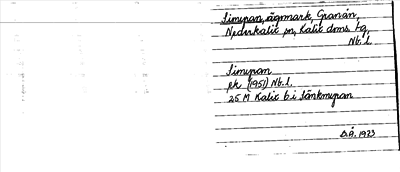 Simypan, ägomark, Granån,
Nederkalix sn, Kalix doms. tg,
Nb. l.
Simypan
pk (1951) Nb. l.
25 M Kalix b.i Sänkmypan
D.Å. 1973